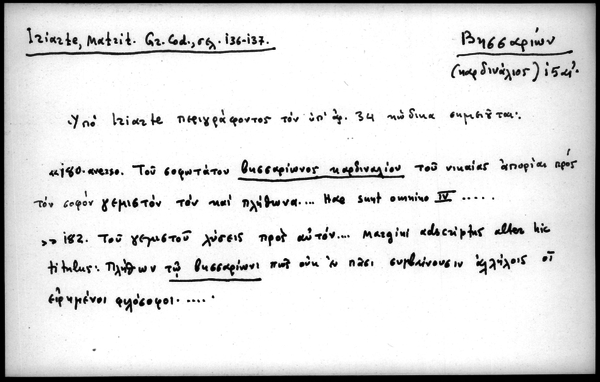 Iriarte, Matrit. Gr. Cod., σελ. 136-137.
Βησσαρίων
(καρδινάλιος) 15 αἰ.
Ὑπὸ Iriarte περιγράφοντος τὸν ὑπ' ἀρ. 34 κώδικα σημειοῦται:
«180. averso. Τοῦ σοφωτάτου Βησσαρίωνος καρδιναλίου τοῦ νικαίας ἀπορίαι πρὸς
τὸν σοφὸν γεμιστὸν τὸν καὶ πλήθωνα... Hae sunt omnino IV .....
»» 182. Τοῦ γεμιστοῦ λύσεις πρὸς αὐτόν... Margini adscriptus alter hic
titulus: Πλήθων τῷ Βησσαρίωνι πῶς οὐκ ἐν πᾶσι συμβαίνουσιν ἀλλήλοις οἱ
εἰρημένοι φιλόσοφοι.....